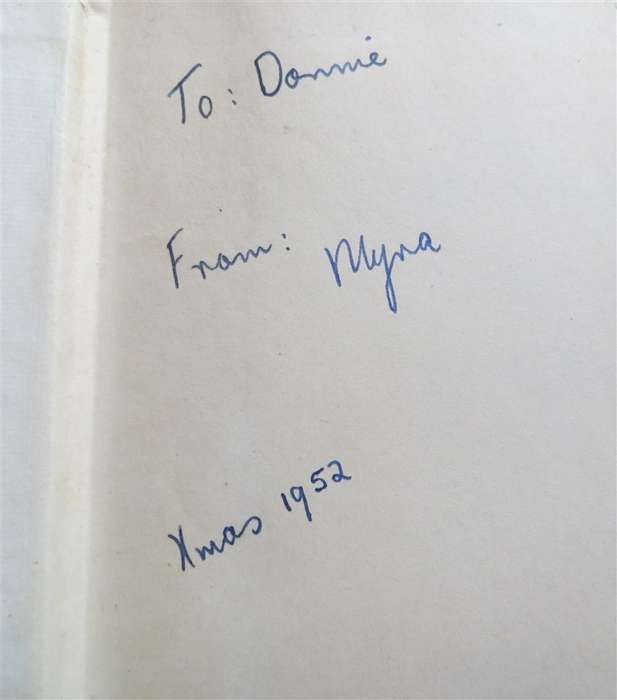 To: Donnie
From: Myra
Xmas 1952